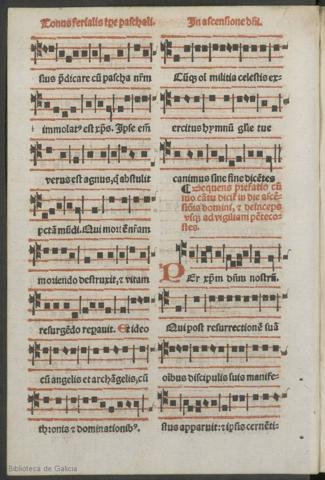 Tonus ferialis tpe paschali.
sius p̄dicare cū pascha nr̄m
immolatꝰ est xp̄s. Ipse em̄
verus est agnus, q̇ abstulit
pctā mūdi. Qui mortē nr̄am
moriendo destruxit, ⁊ vitam
resurgēdo repauit. Et ideo
cū angelis et archāgelis, cū
thronis ⁊ dominationibꝰ.
In ascensione dn̄i.
Cūq̨ ol militia celestis ex-
ercitus hymnū gl̄ie tue
canimus sine fine dicētes
¶ Sequens prefatio cū
mo cātu dicit̄ in die ascē-
sionis domini, ⁊ deinceps
vsq̨ ad vigiliam pēteco-
stes.
Per xp̄m dn̄m nostrū.
Qui post resurrectionē suā
oībus discipulis suis manife-
stus apparuit: ⁊ ip̄sis cernēti-
Biblioteca de Galicia